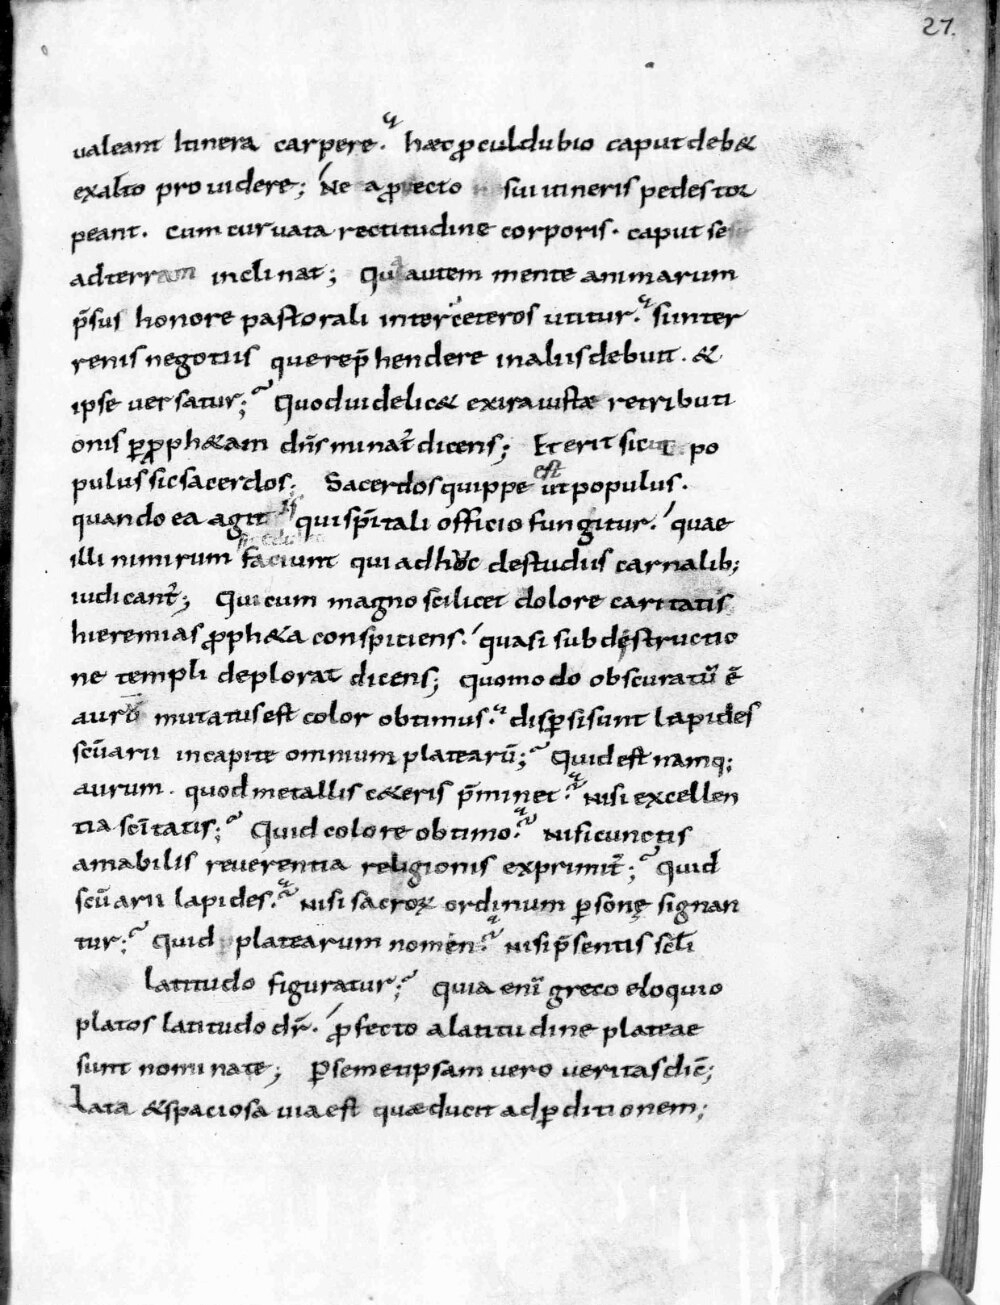 27.
ualeant Itinera carpere. haec p̱culdubio caput deb&
exalto prouidere; Ne a p̱uecto sui itineris pedes tor
peant. Cum curuata rectitudine corporis. caput sese
adterram inclinat; Qua autem mente animarum
p̄sus honore pastorali inter ceteros utitur. sunter
renis negotiis que rep̄hendere in aliis debuit. &
ipse uersatur; Quod uidelic& exira iustæ retributi
onis p̱ p̱ph&am dn̄s minat̄ dicens; Et erit sicut po
pulus sic sacerdos. Sacerdos quippe est ut populus.
quando ea agit is qui sp̄itali officio fungitur. quae
illi nimirum faciunt qui adhuc destudiis carnalib;
iudicant̄; Qui cum magno scilicet dolore caritatis
hieremias p̱ph&a conspiciens. quasi sub destructio
ne templi deplorat dicens; Quomodo obscuratū ē
aurū mutatus est color obtimus. disp̱si sunt lapides
scūarii incapite omnium platearū; Quid est namq;
aurum. quod metallis c&eris p̄minet. nisi excellen
tia scītatis; Quid colore obtimo. nisi cunctis
amabilis reuerentia religionis exprimit̄; Quid
scūarii lapides. nisi sacroꝝ ordinum p̱sonę signan
tur; Quid platearum nomen. nisi p̄sentis scl̄i
latitudo figuratur; Quia enī greco eloquio
platos latitudo dr̄. p̱fecto alatitudine plateae
sunt nominate; P̱ semetipsam uero ueritas dic̄;
Lata &spaciosa uia est quæ ducit adp̱ditionem;